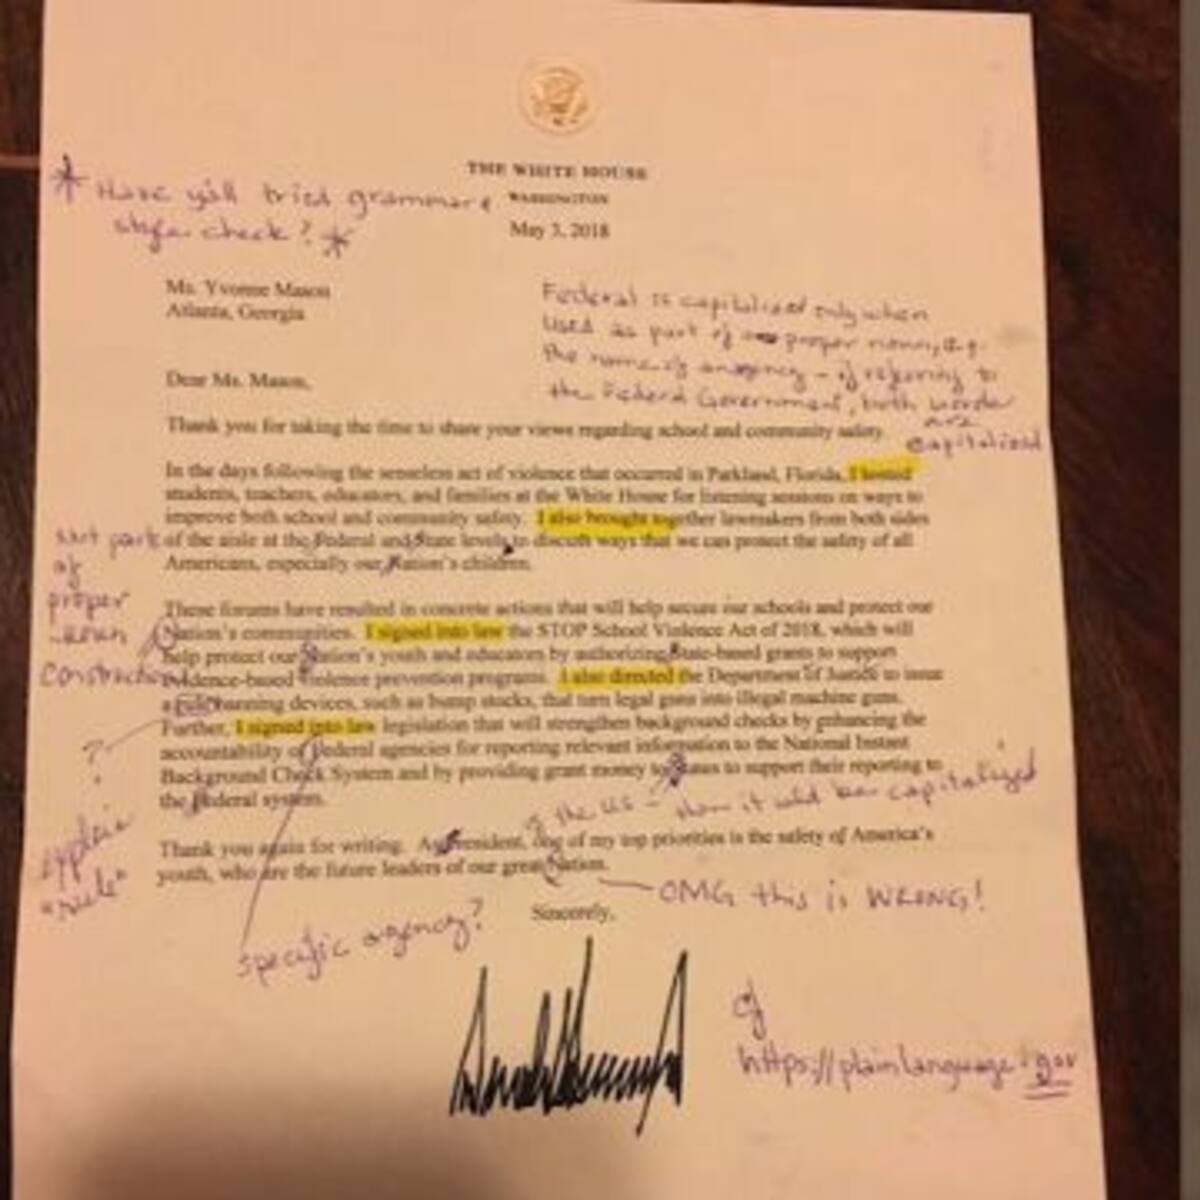 THE WHITE HOUSE
WASHINGTON
May 3, 2018
* Have y'all tried grammar &
style check? *
Ms. Yvonne Mason
Atlanta, Georgia
Federal is capitalized only when
used as part of proper noun, e.g.
the name of an agency - if referring to
the Federal Government, both words
are
capitalized
Dear Ms. Mason,
Thank you for taking the time to share your views regarding school and community safety.
In the days following the senseless act of violence that occurred in Parkland, Florida, I hosted
students, teachers, educators, and families at the White House for listening sessions on ways to
improve both school and community safety. I also brought together lawmakers from both sides
of the aisle at the Federal and State levels to discuss ways that we can protect the safety of all
Americans, especially our Nation's children.
not part
of
proper
noun
construction
These forums have resulted in concrete actions that will help secure our schools and protect our
Nation's communities. I signed into law the STOP School Violence Act of 2018, which will
help protect our Nation's youth and educators by authorizing State-based grants to support
evidence-based violence prevention programs. I also directed the Department of Justice to issue
a rule banning devices, such as bump stocks, that turn legal guns into illegal machine guns.
Further, I signed into law legislation that will strengthen background checks by enhancing the
accountability of Federal agencies for reporting relevant information to the National Instant
Background Check System and by providing grant money to States to support their reporting to
the Federal system.
?
explain
"rule"
of the US - then it would be capitalized
Thank you again for writing. As President, one of my top priorities is the safety of America's
youth, who are the future leaders of our great Nation.
OMG this is WRONG!
Sincerely,
specific agency?
cf
https://plainlanguage.gov